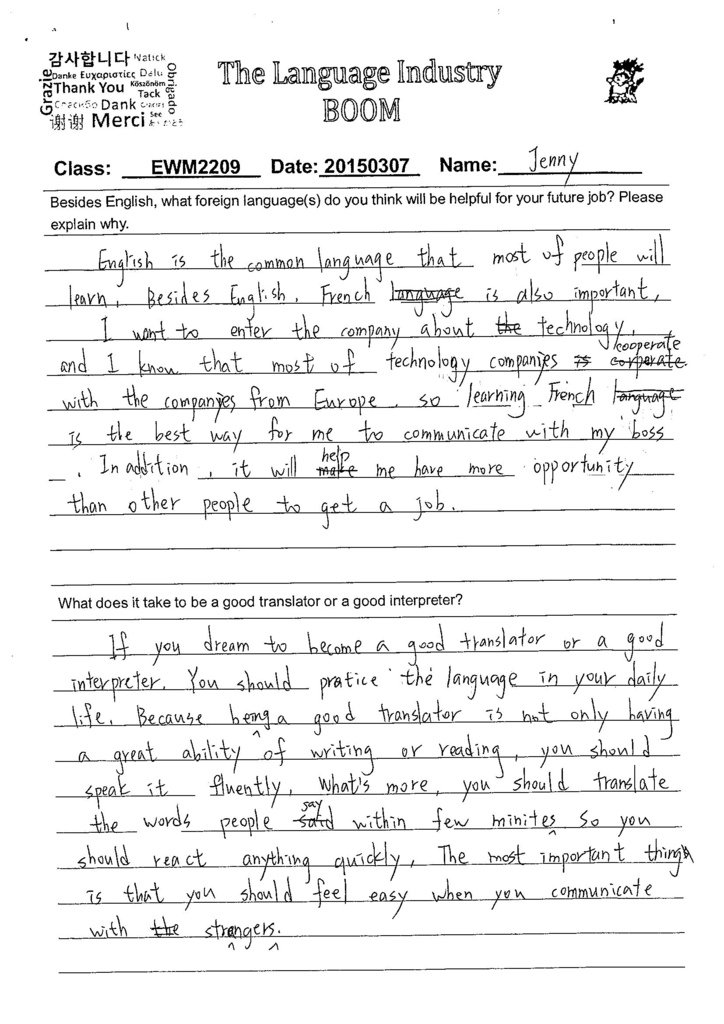 감사합니다 Natick
Danke Ευχαριστίες Dalu
Thank You Köszönöm
Tack
Спасибо Dank
谢谢 Merci See
Grazie
Obrigado
The Language Industry
BOOM
Class: EWM2209 Date: 20150307 Name: Jenny
Besides English, what foreign language(s) do you think will be helpful for your future job? Please
explain why.
English is the common language that most of people will
learn. Besides English, French language is also important,
I want to enter the company about the technology,
cooperate
and I know that most of technology companies is corperate
with the companyies from Europe, so learning French language
is the best way for me to communicate with my boss
help
. In addition, it will make me have more opportunity
than other people to get a job.
What does it take to be a good translator or a good interpreter?
If you dream to become a good translator or a good
interpreter. You should pratice the language in your daily
life. Because being a good translator is not only having
a great ability of writing or reading, you should
speak it fluently, What's more, you should translate
say
the words people said within few minites so you
should react anything quickly, The most important thing
is that you should feel easy when you communicate
with the strangers.